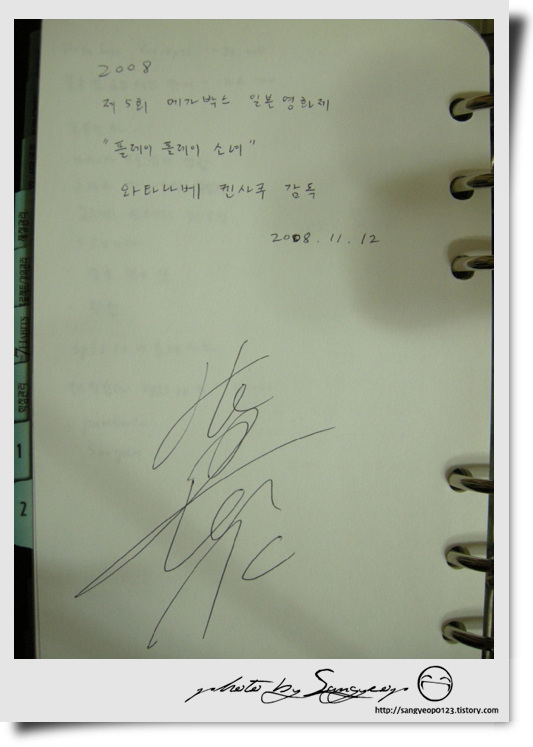 2008
제 5회 메가박스 일본영화제
"플레이 플레이 소녀"
와타나베 켄사쿠 감독
2008.11.12
1
2
photo by Sangyeop
http://sangyeop0123.tistory.com